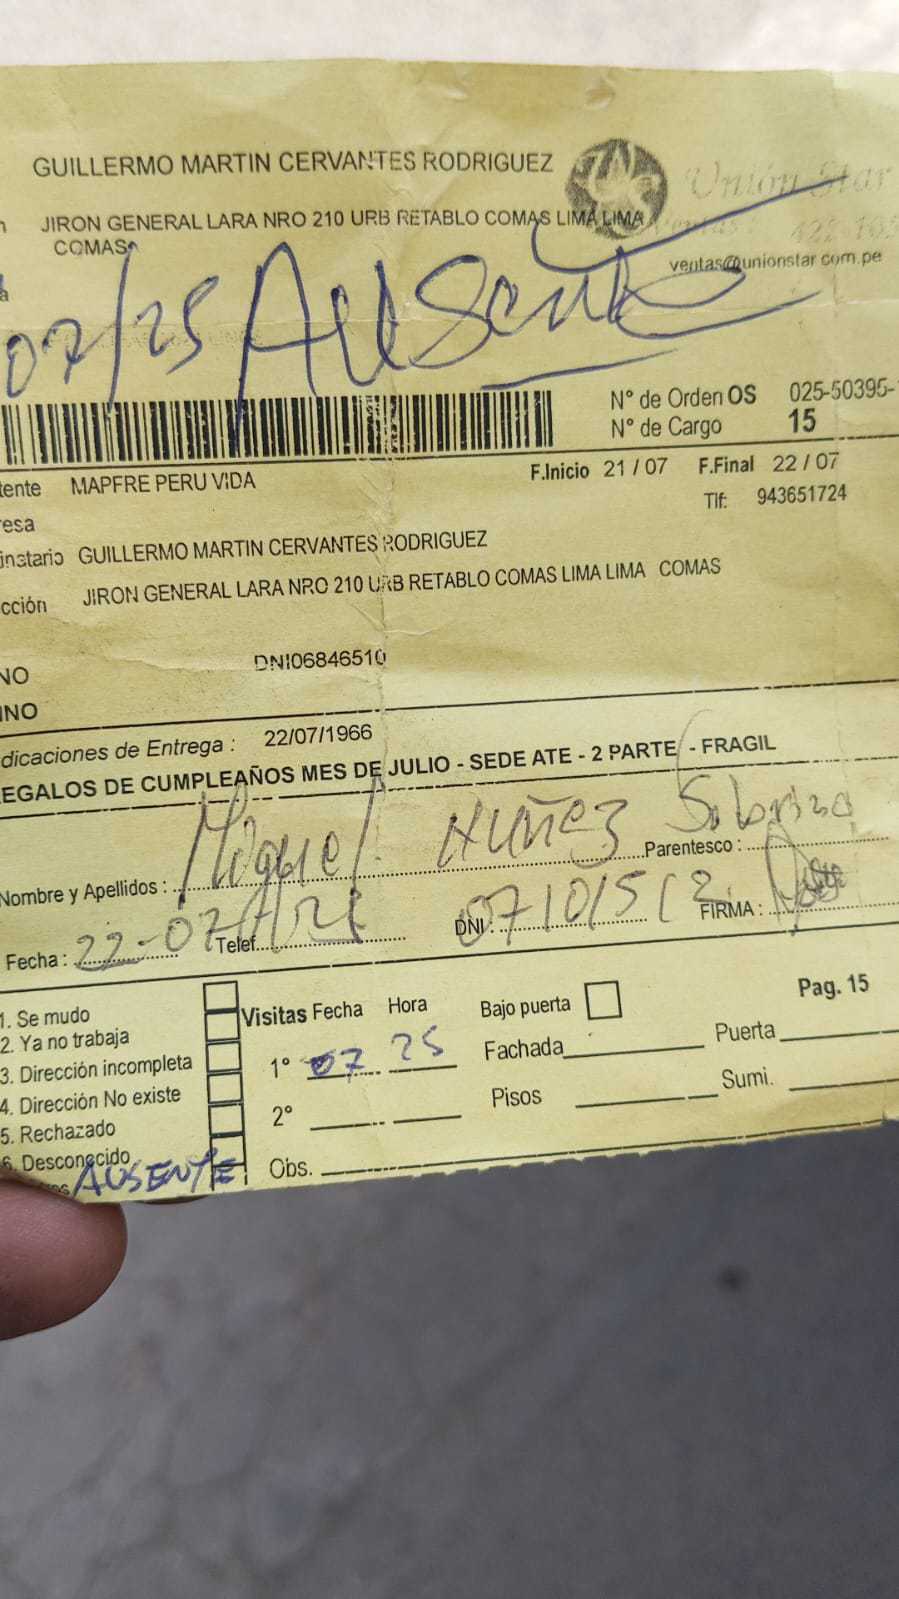 GUILLERMO MARTIN CERVANTES RODRIGUEZ
Unión Star
JIRON GENERAL LARA NRO 210 URB RETABLO COMAS LIMA LIMA
COMAS
ventas@unionstar.com.pe
07/25 AUSENTE
N° de Orden OS 025-50395-
N° de Cargo 15
tente MAPFRE PERU VIDA
F.Inicio 21 / 07 F.Final 22 / 07
Tlf: 943651724
resa
inatario GUILLERMO MARTIN CERVANTES RODRIGUEZ
cción JIRON GENERAL LARA NRO 210 URB RETABLO COMAS LIMA LIMA COMAS
NO DNI06846510
INO
dicaciones de Entrega : 22/07/1966
EGALOS DE CUMPLEAÑOS MES DE JULIO - SEDE ATE - 2 PARTE - FRAGIL
Nombre y Apellidos : Miguel Nuñez Parentesco : Sobrino
Fecha : 22-07 Telef. DNI : FIRMA :
1. Se mudo
2. Ya no trabaja
3. Dirección incompleta
4. Dirección No existe
5. Rechazado
6. Desconocido
AUSENTE
Visitas Fecha Hora Bajo puerta Pag. 15
1° 07 25 Fachada Puerta
2° Pisos Sumi.
Obs.